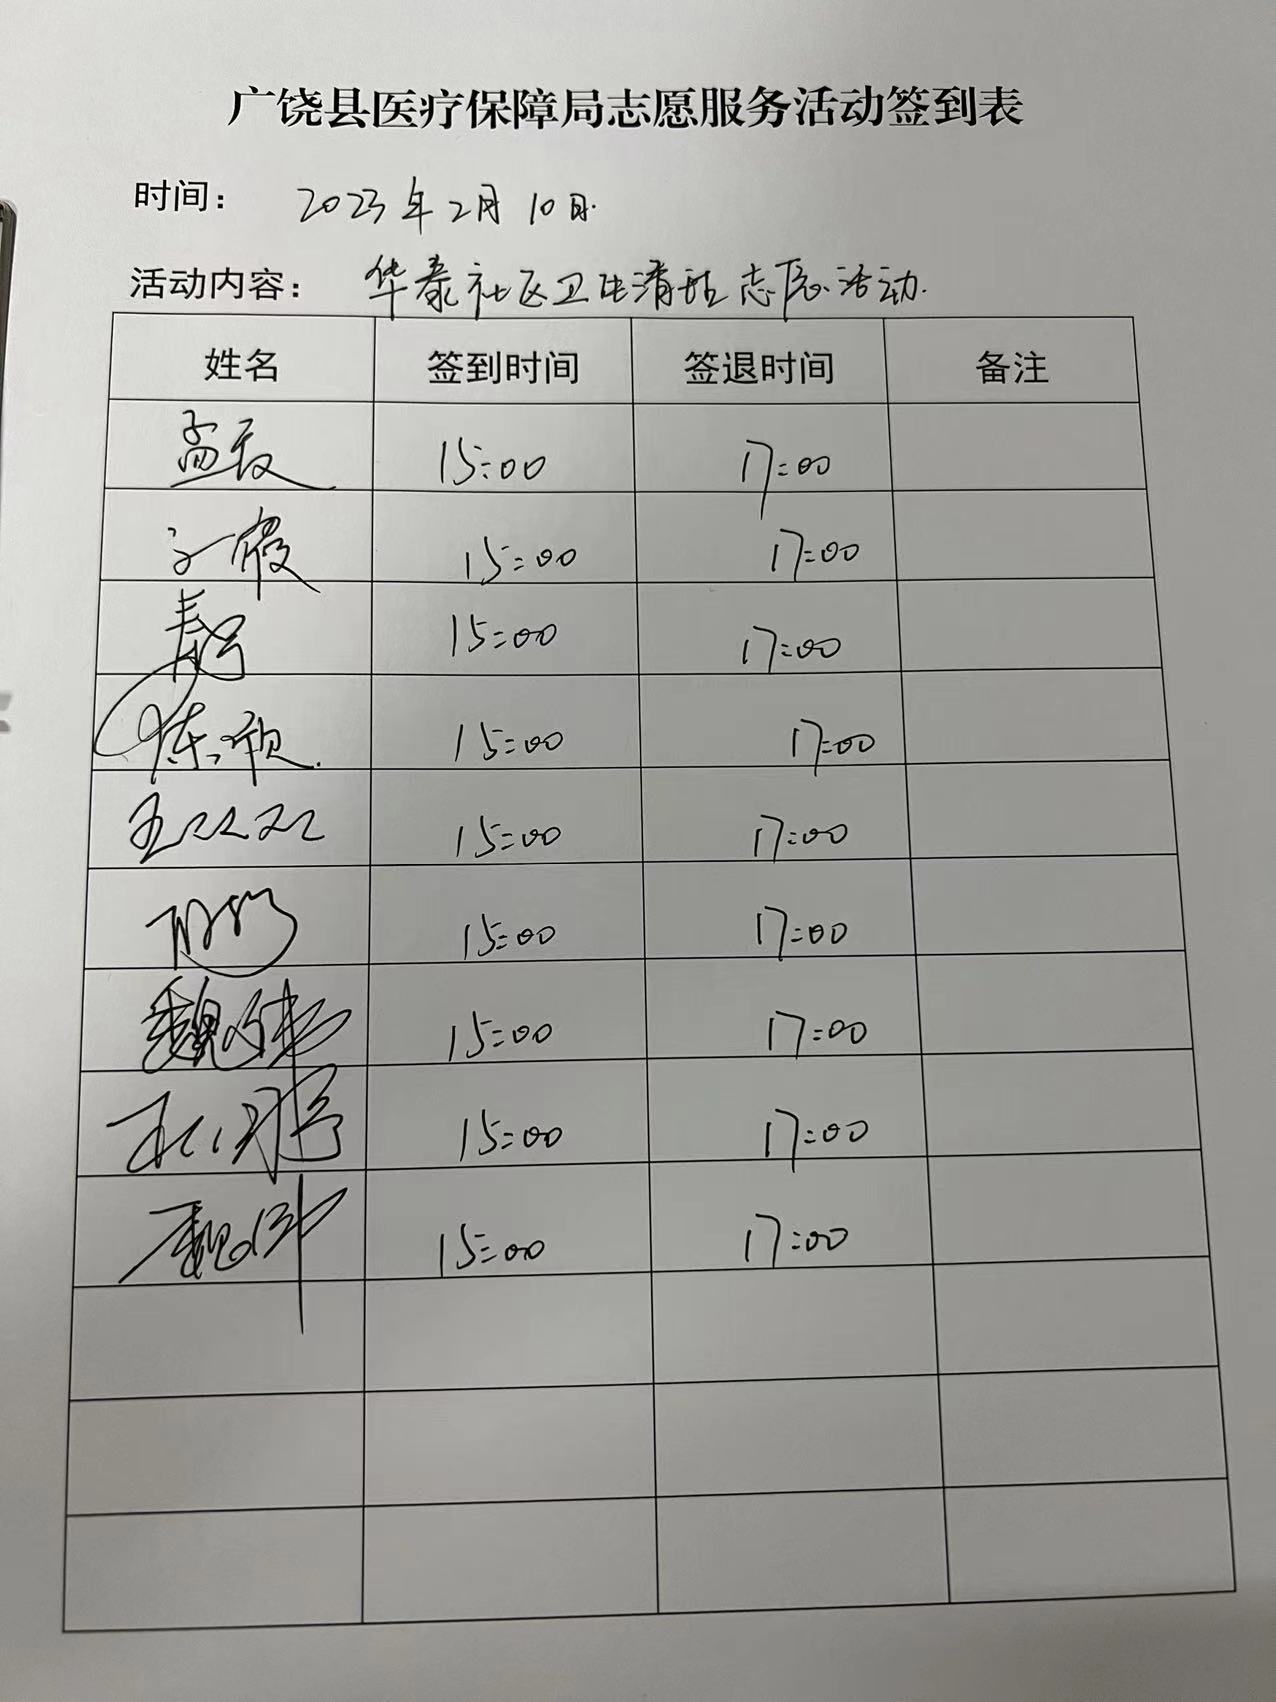 广饶县医疗保障局志愿服务活动签到表
时间： 2023年2月10日.
活动内容： 华泰社区卫生清洁志愿活动.
姓名 签到时间 签退时间 备注
孟 15:00 17:00
15:00 17:00
15:00 17:00
陈颖. 15:00 17:00
王双双 15:00 17:00
15:00 17:00
魏 15:00 17:00
15:00 17:00
魏 15:00 17:00